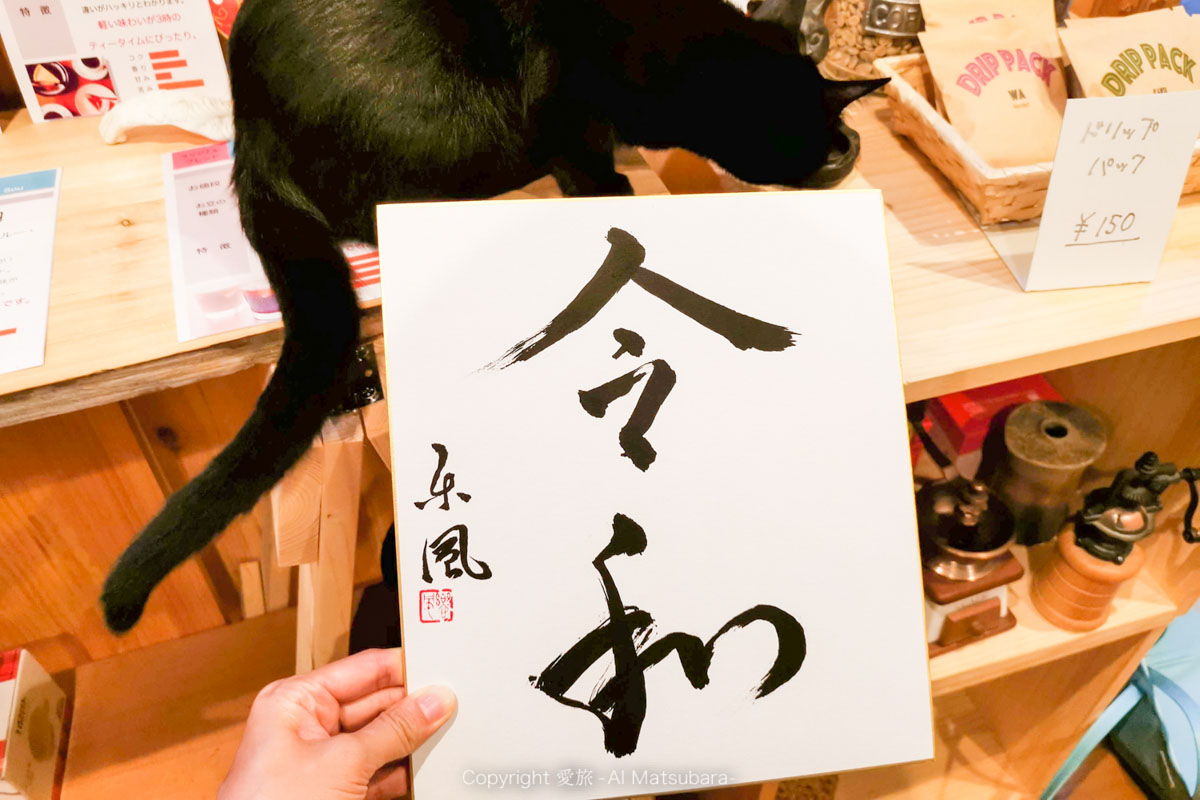 特徴
違いがハッキリとわかります。
軽い味わいが3時の
ティータイムにぴったり。
コク
香り
甘み
苦み
お値段
お豆の
種類
特徴
です。
COF
DRIP PACK
WA
DRIP PACK
ドリップ
パック
¥150
令和
楽風
Copyright 愛旅 - AI Matsubara-